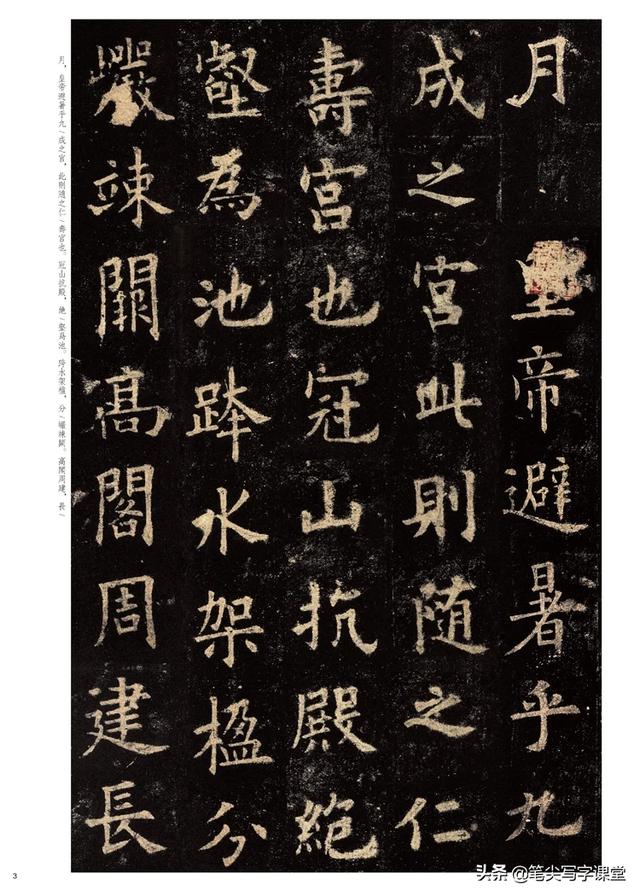 月皇帝避暑乎九
成之宫此則随之仁
壽宫也冠山抗殿絶
壑為池跨水架楹分
巖竦闕髙閣周建長
月，皇帝避暑乎九／成之宫，此則隨之仁／壽宫也。冠山抗殿，絶／壑爲池。跨水架楹，分／巖竦闕。高閣周建，長／
3
头条 @笔尖写字课堂